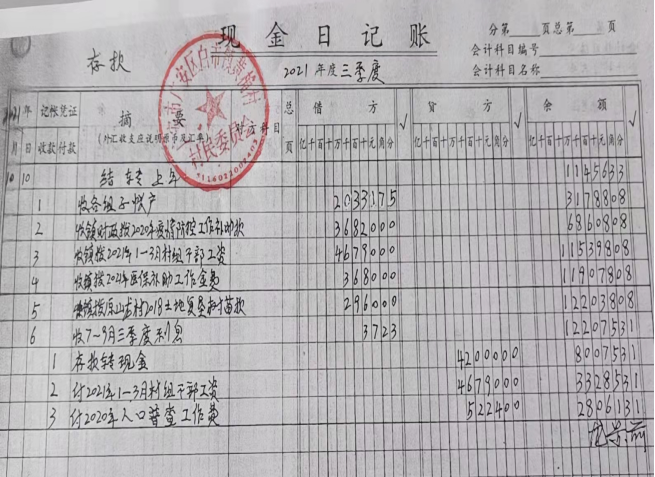 现金日记账
分第 页总第 页
会计科目编号
会计科目名称
存款
2021年度三季度
2021年 记帐凭证 摘要 对方科目 总页 借方 √ 贷方 √ 余额 √
月 日 收款 付款 (外汇收支应说明原币及汇率) 亿千百十万千百十元角分 亿千百十万千百十元角分 亿千百十万千百十元角分
10 10 结转上年 1145633
1 收各组子帐户 2033175 3178808
2 收镇财政拨2020年疫情防控工作补助款 3682000 6860808
3 收镇拨2021年1-3月村组干部工资 4679000 11539808
4 收镇拨2021年医保补助工作金费 368000 11907808
5 收镇拨 村2018土地复垦 苗款 296000 12203808
6 收7~9月三季度利息 3723 12207531
1 存款转现金 4200000 8007531
2 付2021年1-3月村组干部工资 4679000 3328531
3 付2020年人口普查工作费 522400 2806131
村民委员会